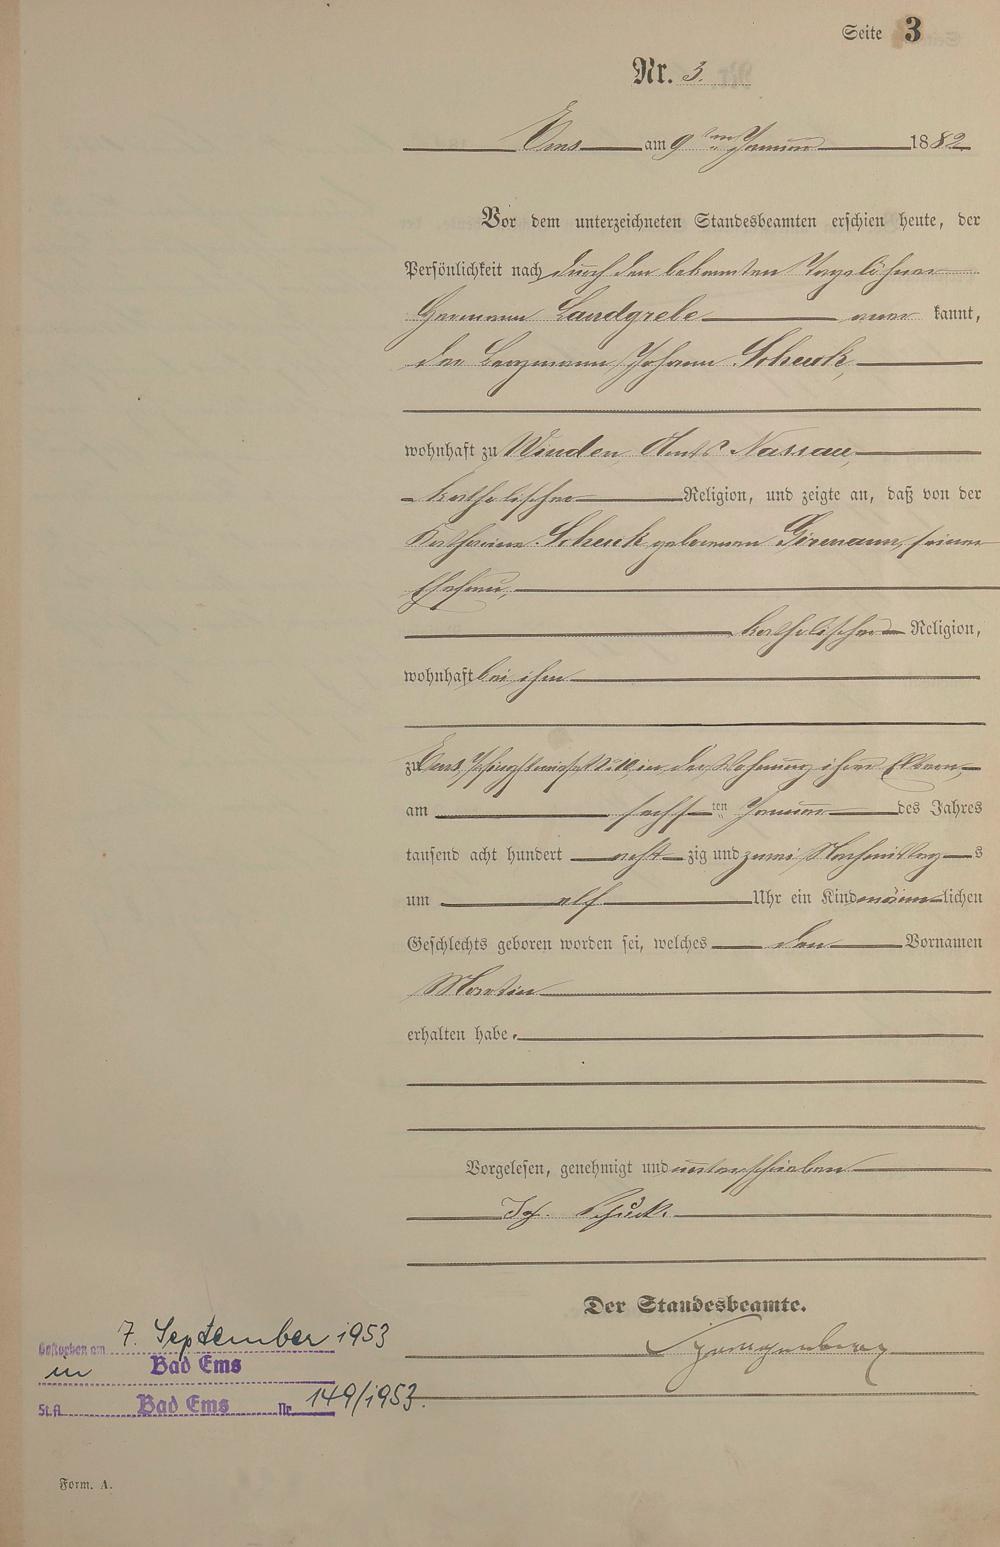 Seite 3
Nr. 3.
Ems am 9ten Januar 1882
Vor dem unterzeichneten Standesbeamten erschien heute, der
Persönlichkeit nach durch den bekannten Tagelöhner
Hermann Landgrebe kannt,
der Bergmann Johann
wohnhaft zu Winden, Amts Nassau,
katholischer Religion, und zeigte an, daß von der
Katharina geborenen seiner
Ehefrau,
katholischer Religion,
wohnhaft bei ihm
zu Ems, in der Wohnung ihrer Eltern
am sechsten Januar des Jahres
tausend acht hundert acht zig und zwei Nachmittags
um elf Uhr ein Kind männlichen
Geschlechts geboren worden sei, welches den Vornamen
Martin
erhalten habe.
Vorgelesen, genehmigt und unterschrieben
Joh.
Der Standesbeamte.
Gestorben am 7. September 1953
in Bad Ems
St.A. Bad Ems Nr. 149/1953.
Form. A.